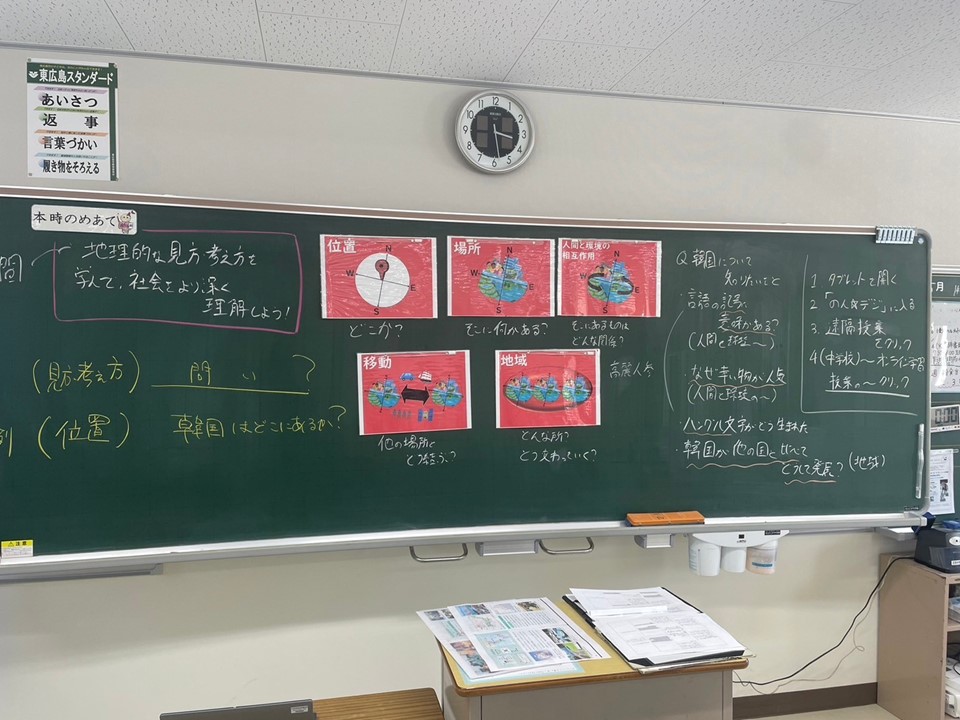 東広島スタンダード
あいさつ
返事
言葉づかい
履き物をそろえる
本時のめあて
問
地理的な見方考え方を
学んで、社会をより深く
理解しよう!
(見方考え方) 問い?
(位置) 韓国はどこにあるか?
位置
N
W
E
S
どこか?
場所
N
W
E
S
そこに何がある?
人間と環境の
相互作用
N
W
E
S
そこにあるものは
どんな関係?
移動
他の場所と
どう違う?
地域
どんな所?
どう変わっていく?
高麗人参
Q 韓国について
知りたいこと
・言語の
意味がある?
(人間と環境〜)
なぜ辛い物が人気
(人間と環境の〜)
・ハングル文字がどう生まれた
・韓国が他の国と比べて
どうして発展? (地域)
1 タブレットを開く
2
に入る
3. 遠隔授業
をクリック
4 (中学校)〜オンライン学習
授業の〜クリック
注意